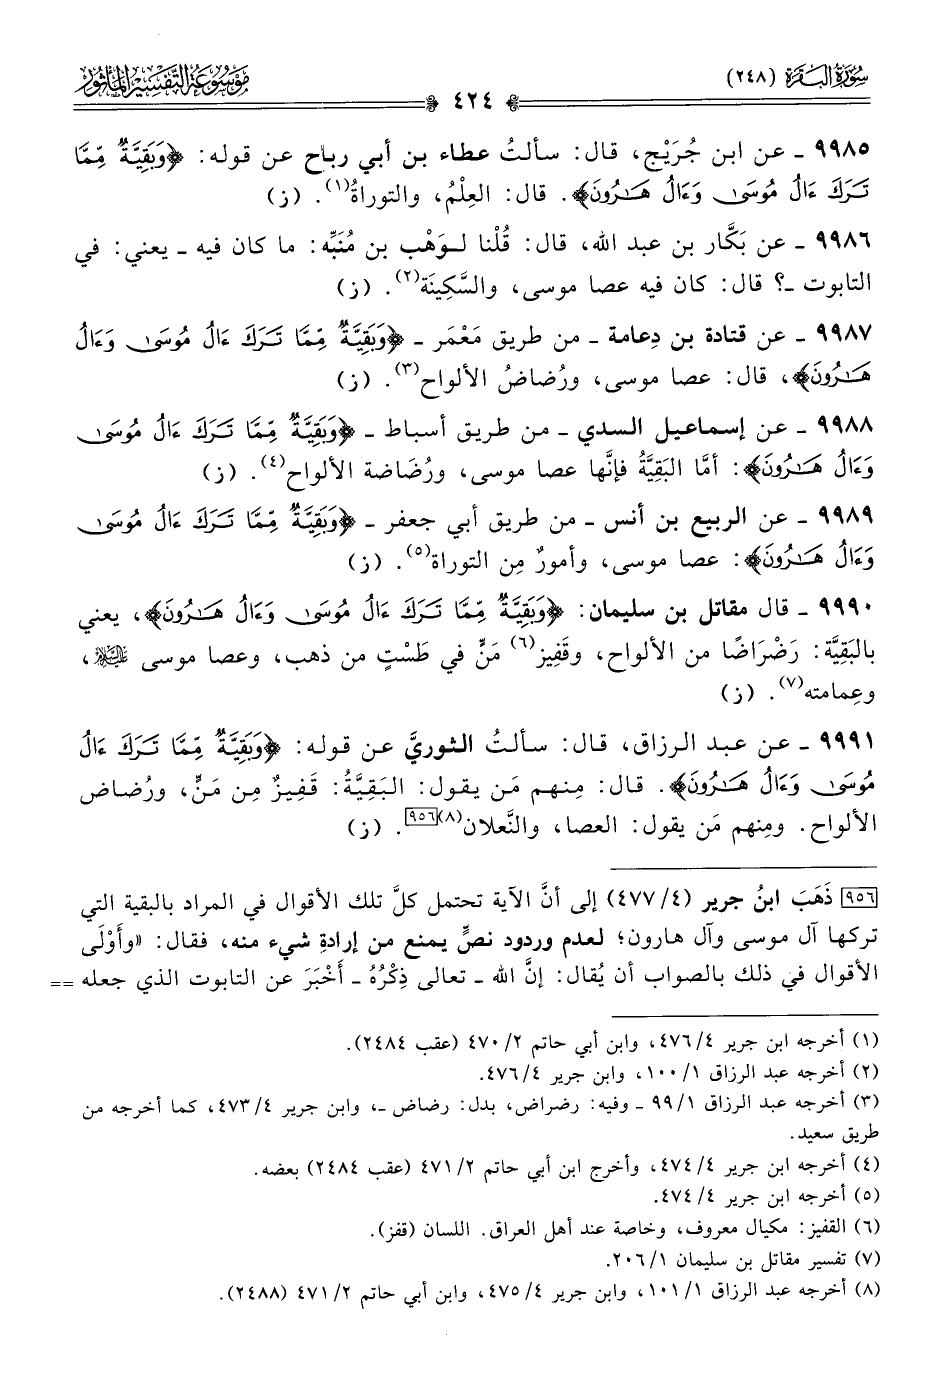 سُورَةُ البَقَرَة (٢٤٨)
مَوْسُوعَة التَّفْسِيرِ المَأْثُور
٤٢٤
٩٩٨٥ ـ عن ابن جُرَيْج، قال: سألتُ عطاء بن أبي رباح عن قوله: ﴿وَبَقِيَّةٌ مِّمَّا
تَرَكَ ءَالُ مُوسَىٰ وَءَالُ هَـٰرُونَ﴾. قال: العِلْمُ، والتوراةُ(١). (ز)
٩٩٨٦ ـ عن بَكَّار بن عبد الله، قال: قُلْنا لـوَهْب بن مُنَبِّه: ما كان فيه ـ يعني: في
التابوت ـ؟ قال: كان فيه عصا موسى، والسَّكِينَة(٢). (ز)
٩٩٨٧ ـ عن قتادة بن دِعامة ـ من طريق مَعْمَر ـ ﴿وَبَقِيَّةٌ مِّمَّا تَرَكَ ءَالُ مُوسَىٰ وَءَالُ
هَـٰرُونَ﴾، قال: عصا موسى، ورُضاضُ الألواح(٣). (ز)
٩٩٨٨ ـ عن إسماعيل السدي ـ من طريق أسباط ـ ﴿وَبَقِيَّةٌ مِّمَّا تَرَكَ ءَالُ مُوسَىٰ
وَءَالُ هَـٰرُونَ﴾: أمَّا البَقِيَّةُ فإنَّها عصا موسى، ورُضَاضة الألواح(٤). (ز)
٩٩٨٩ ـ عن الربيع بن أنس ـ من طريق أبي جعفر ـ ﴿وَبَقِيَّةٌ مِّمَّا تَرَكَ ءَالُ مُوسَىٰ
وَءَالُ هَـٰرُونَ﴾: عصا موسى، وأمورٌ مِن التوراة(٥). (ز)
٩٩٩٠ ـ قال مقاتل بن سليمان: ﴿وَبَقِيَّةٌ مِّمَّا تَرَكَ ءَالُ مُوسَىٰ وَءَالُ هَـٰرُونَ﴾، يعني
بالبَقِيَّة: رَضْرَاضًا من الألواح، وقَفِيز(٦) مَنٍّ في طَسْتٍ من ذهب، وعصا موسى عليه السلام،
وعِمامته(٧). (ز)
٩٩٩١ ـ عن عبد الرزاق، قال: سألتُ الثوريَّ عن قوله: ﴿وَبَقِيَّةٌ مِّمَّا تَرَكَ ءَالُ
مُوسَىٰ وَءَالُ هَـٰرُونَ﴾. قال: مِنهم مَن يقول: البَقِيَّةُ: قَفِيزٌ مِن مَنٍّ، ورُضاض
الألواح. ومِنهم مَن يقول: العصا، والنَّعلان(٨)[٩٥٦]. (ز)
[٩٥٦] ذَهَبَ ابنُ جرير (٤/ ٤٧٧) إلى أنَّ الآية تحتمل كلَّ تلك الأقوال في المراد بالبقية التي
تركها آل موسى وآل هارون؛ لعدم ورود نصٍّ يمنع من إرادةِ شيء منه، فقال: «وأَوْلَى
الأقوال في ذلك بالصواب أن يُقال: إنَّ الله ـ تعالى ذِكْرُهُ ـ أَخْبَرَ عن التابوت الذي جعله ==
(١) أخرجه ابن جرير ٤/ ٤٧٦، وابن أبي حاتم ٢/ ٤٧٠ (عقب ٢٤٨٤).
(٢) أخرجه عبد الرزاق ١/ ١٠٠، وابن جرير ٤/ ٤٧٦.
(٣) أخرجه عبد الرزاق ١/ ٩٩ ـ وفيه: رضراض، بدل: رضاض ـ، وابن جرير ٤/ ٤٧٣، كما أخرجه من
طريق سعيد.
(٤) أخرجه ابن جرير ٤/ ٤٧٤، وأخرج ابن أبي حاتم ٢/ ٤٧١ (عقب ٢٤٨٤) بعضه.
(٥) أخرجه ابن جرير ٤/ ٤٧٤.
(٦) القفيز: مكيال معروف، وخاصة عند أهل العراق. اللسان (قفز).
(٧) تفسير مقاتل بن سليمان ١/ ٢٠٦.
(٨) أخرجه عبد الرزاق ١/ ١٠١، وابن جرير ٤/ ٤٧٥، وابن أبي حاتم ٢/ ٤٧١ (٢٤٨٨).